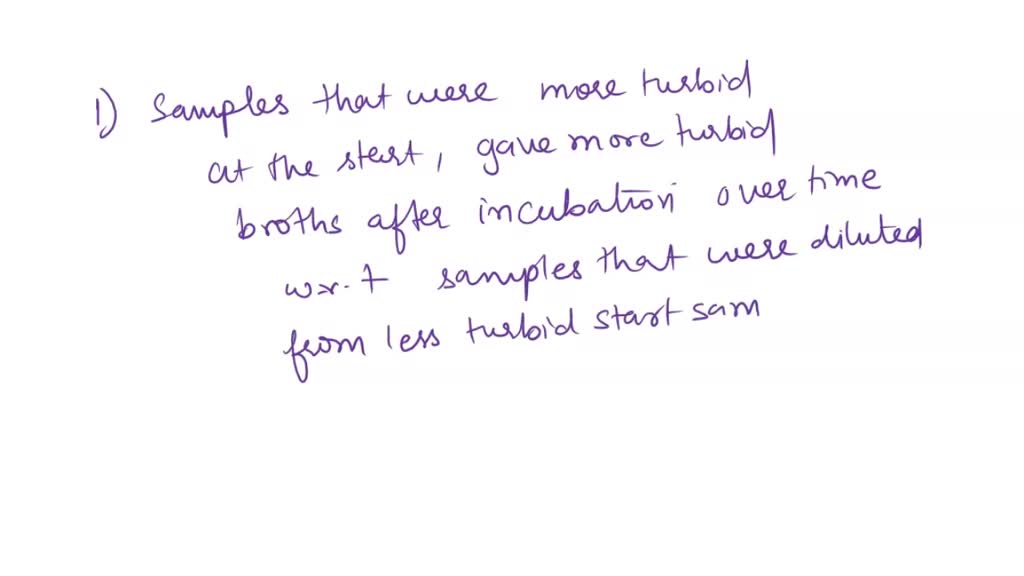 1) Samples that were more turbid
at the start, gave more turbid
broths after incubation over time
w.r.t samples that were diluted
from less turbid start sam